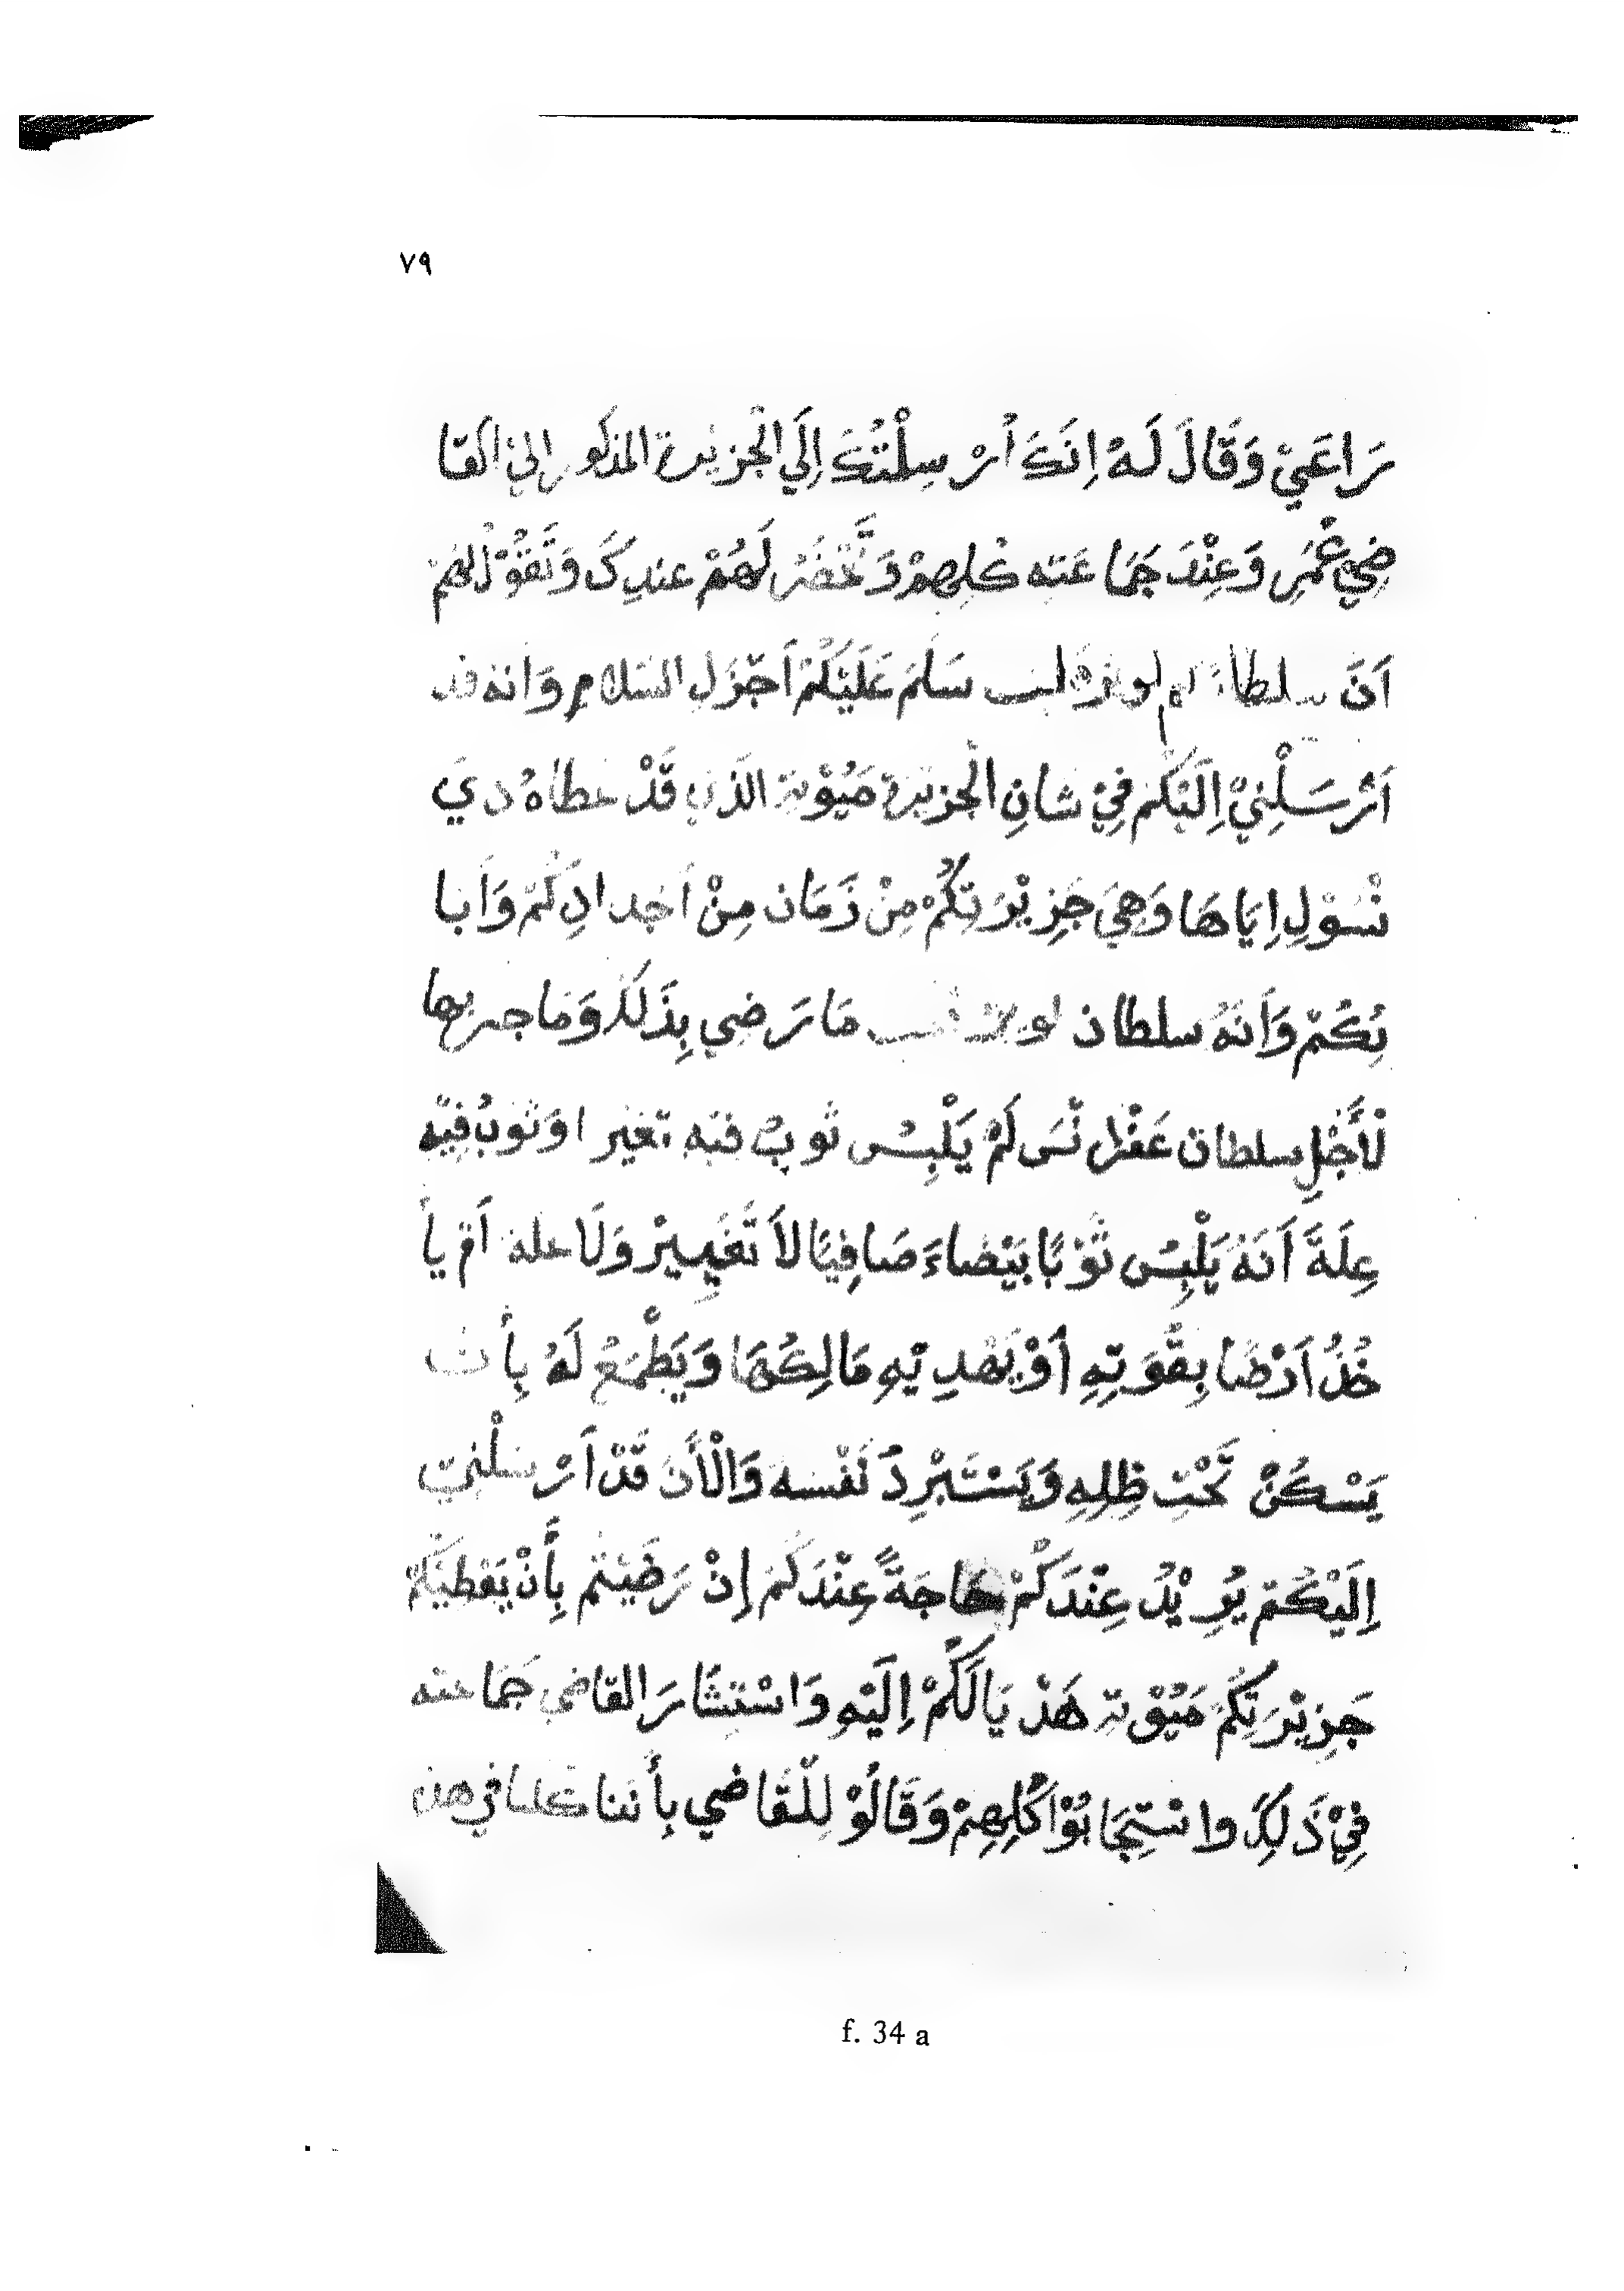 ٧٩
رَاعَيْ وَقَالَ لَهُ اِنَكَ اُرْسِلْتُكَ اِلَي الْجَزِيْرة المذكور اِليْ القَا
ضِيْ عُمْرِ وَعِنْدَ جَمَاعَتِه كُلِهِمْ وَتَّحْضَرُ لَهُمْ عندِكَ وَتَّقُوْلْ لهُمْ
اَنَ سلطان سَلَمَ عَلَيْكُمْ اَجْزَلِ السَلامِ وَانَهُ قد
اَرْسَلْنِيْ اِلَيْكُمْ فِيْ شَانِ الْجَزِيْرَة مَيُوْتِة الذَيْ قَدْ عطاهُ دي
نْسُوْلِ اِيَاهَا وَهِيَ جَزِيْرَتِكُمْ مِنْ زَمَان مِنْ اَجْدادِكُمْ وَاَبا
ئِكُمْ وَاَنَهُ سلطان مَا رَضِي بِذَلِكَ وَمَا جبر بها
لْأَجْلِ سلطان لَمْ يَلْبِسْ ثوبٌ فيْهِ تغير اوَ ثوْبٌ فِيْهِ
عِلَةً اَنَهُ يَلْبِسْ ثَوْبًا بَيْضَاءَ صَافِيًا لاَ تَغَيِيرْ وَلَا علة اَمْ يأ
خُذُ اَرْضًا بِقُوَتِهِ اَوْ يَهْدِيْهِ مَالِكُهَا وَيَطْمَعُ لَهُ بِأَن
يَسْكُنْ تَحْتِ ظِلِهِ وَيَسْتَبْرِدُ نَفْسَه وَالْأَنَ قَدْ اَرْسَلْنِيْ
اِلَيْكُمْ يُرِيْدُ عِنْدَكُمْ حَاجَةً عِنْدَكُمْ اِنْ رَضَيْتُم بِأَنْ يَعْطِيَكُمْ
جَزِيْرَتِكُمْ مَيُوْتِة هَذْ يَالَكُمْ اِلَيْهِ وَاسْتِشَارَ القاضي جَمَاعته
فِيْ ذَلِكَ وا سْتِجَابُوْا كُلِهِمْ وَقَالُوْ لِلْقَاضِي بِأَننا كلنا في هذ
f. 34 a